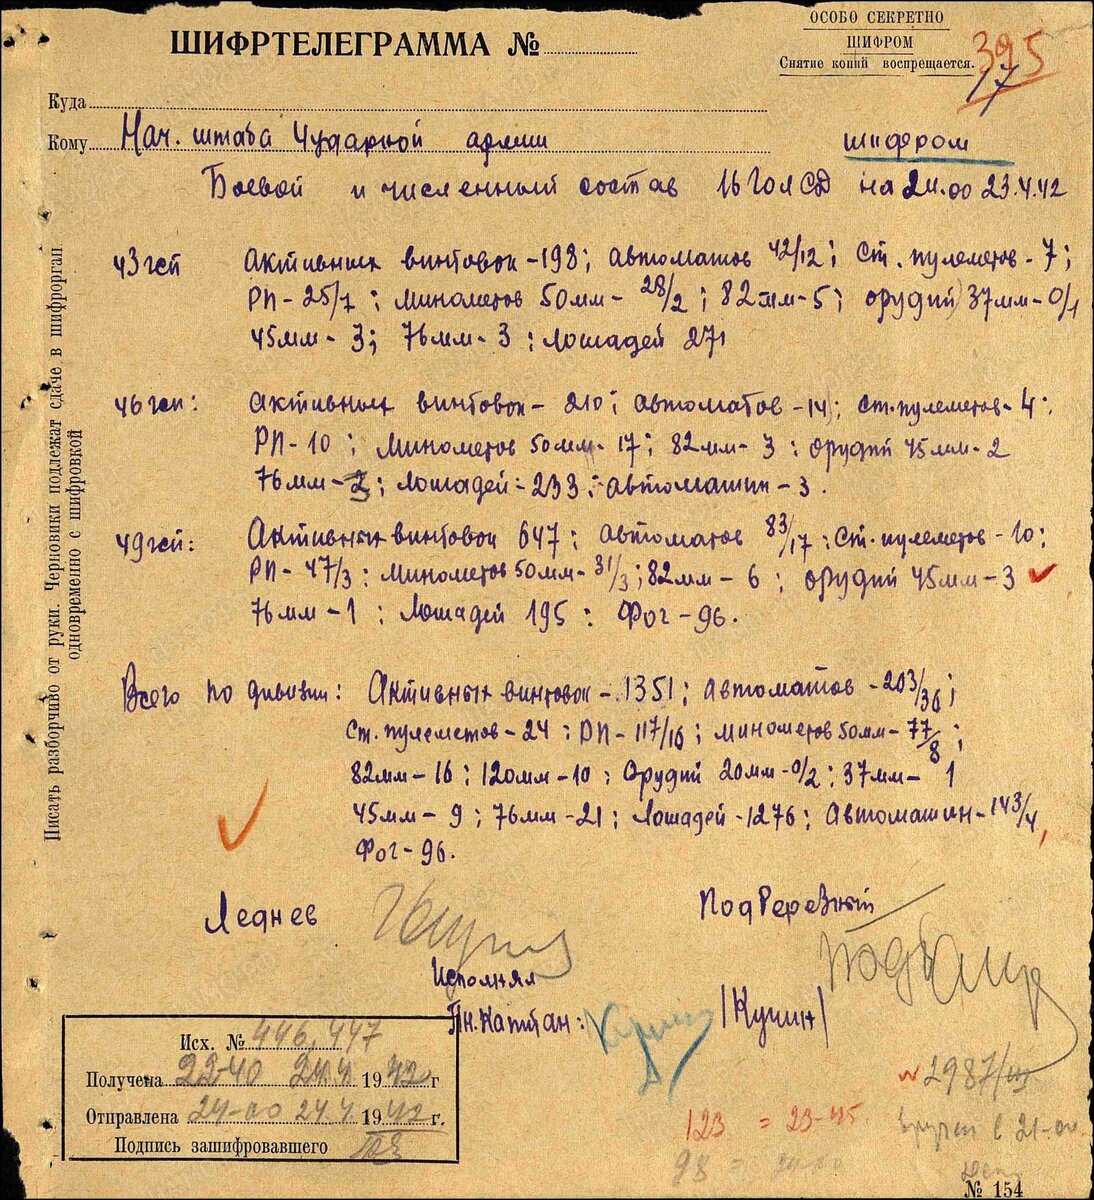 ОСОБО СЕКРЕТНО
ШИФРОМ
Снятие копий воспрещается.
395
17
ШИФРТЕЛЕГРАММА №
Куда
Кому Нач. штаба 4 ударной армии шифром
Боевой и численный состав 16 ГоЛСД на 24.00 23.4.42
43 гсп Активных винтовок - 198; автоматов 42/12; Ст. пулеметов - 7;
РП - 25/7; Минометов 50мм - 28/2; 82мм - 5; орудий 37мм - 0/1
45мм - 3; 76мм - 3; Лошадей 271
46 гсп: Активных винтовок - 210; автоматов - 14; Ст. пулеметов - 4;
РП - 10; Минометов 50мм - 17; 82мм - 3; орудий 45мм - 2
76мм - 2; Лошадей - 233; Автомашин - 3.
49 гсп: Активных винтовок 647; автоматов 83/17; Ст. пулеметов - 10;
РП - 47/3; Минометов 50мм - 31/3; 82мм - 6; орудий 45мм - 3
76мм - 1; Лошадей 195; Фог - 96.
Всего по дивизии: Активных винтовок - 1351; автоматов - 203/36;
Ст. пулеметов - 24; РП - 117/16; минометов 50мм - 77/8;
82мм - 16; 120мм - 10; Орудий 20мм - 0/2; 37мм - 1
45мм - 9; 76мм - 21; Лошадей - 1276; Автомашин - 143/4,
Фог - 96.
Леднев Подберезный
Исполнял
Пн. Капитан: /Кучин/
Исх. № 446, 447
Получена 22-40 24.4 1942 г
Отправлена 24-00 24.4 1942 г.
Подпись зашифровавшего
2987/ш
123 = 23-45
98
в 21-00
№ 154
Писать разборчиво от руки. Черновики подлежат сдаче в шифрорган
одновременно с шифровкой